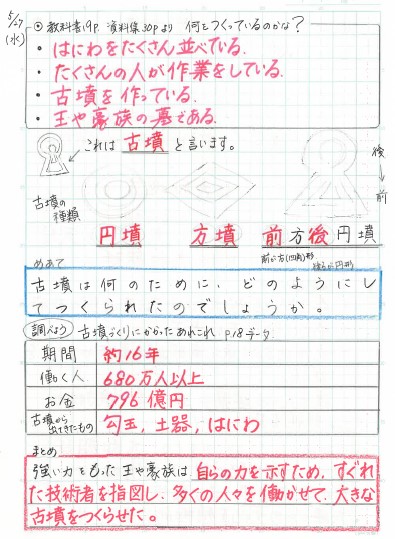 5/27
(水)
⊙ 教科書19p. 資料集30pより 何をつくっているのかな？
・はにわをたくさん並べている.
・たくさんの人が作業をしている.
・古墳を作っている.
・王や豪族の墓である.
これは 古墳 と言います。
後
↓
前
古墳の
種類
円墳 方墳 前方後円墳
前が方(四角)形
後ろが円形
めあて
古墳は何のために、どのようにし
てつくられたのでしょうか。
調べよう 古墳づくりにかかったあれこれ P.18データ.
期間 約16年
働く人 680万人以上
お金 796億円
古墳から
出てきたもの 勾玉, 土器, はにわ
まとめ
強い力をもった王や豪族は 自らの力を示すため, すぐれ
た技術者を指図し, 多くの人々を働かせて, 大きな
古墳をつくらせた。